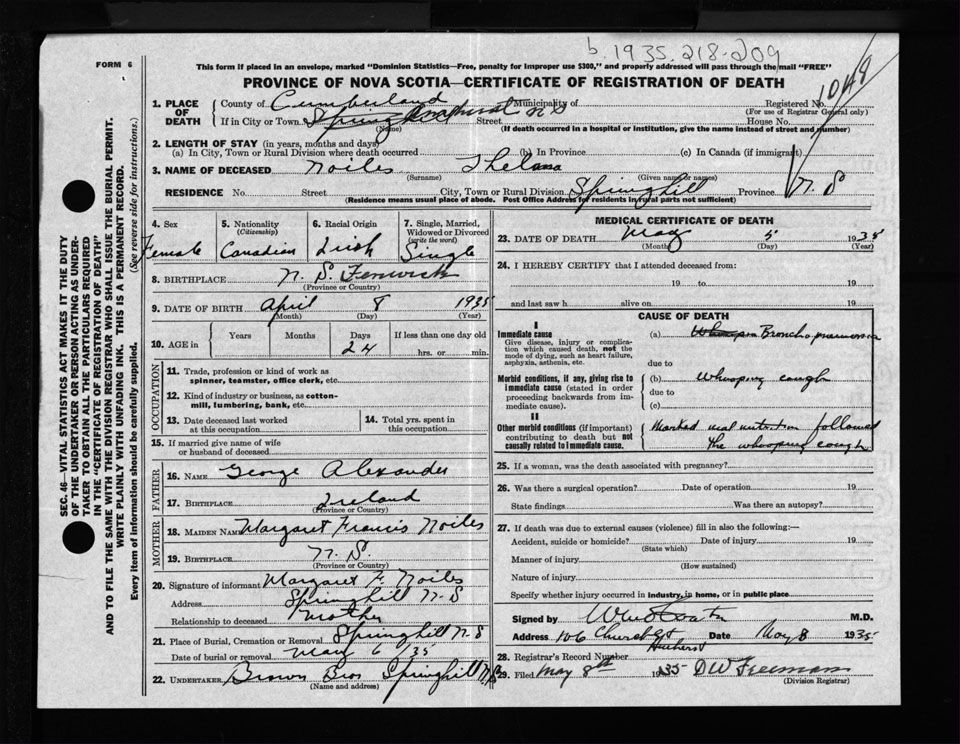 b 1935.218-209
1049
FORM 6
This form if placed in an envelope, marked "Dominion Statistics—Free, penalty for improper use $300," and properly addressed will pass through the mail "FREE"
PROVINCE OF NOVA SCOTIA—CERTIFICATE OF REGISTRATION OF DEATH
1. PLACE OF DEATH County of Cumberland Municipality of Registered No.
(For use of Registrar General only)
If in City or Town Spring Amherst N S Street House No.
(Name) (If death occurred in a hospital or institution, give the name instead of street and number)
2. LENGTH OF STAY (in years, months and days)
(a) In City, Town or Rural Division where death occurred (b) In Province (c) In Canada (if immigrant)
3. NAME OF DECEASED Noiles Thelma
(Surname) (Given name or names)
RESIDENCE No. Street City, Town or Rural Division Springhill Province N. S
(Residence means usual place of abode. Post Office Address for residents in rural parts not sufficient)
4. Sex 5. Nationality (Citizenship) 6. Racial Origin 7. Single, Married, Widowed or Divorced (write the word)
Female Canadian Irish Single
8. BIRTHPLACE N. S. Fenwick
(Province or Country)
9. DATE OF BIRTH April 8 1935
(Month) (Day) (Year)
10. AGE in Years Months Days If less than one day old
24 hrs. or min.
OCCUPATION
11. Trade, profession or kind of work as spinner, teamster, office clerk, etc.
12. Kind of industry or business, as cotton-mill, lumbering, bank, etc.
13. Date deceased last worked at this occupation 14. Total yrs. spent in this occupation
15. If married give name of wife or husband of deceased
FATHER
16. NAME George Alexander
17. BIRTHPLACE Ireland
(Province or Country)
MOTHER
18. MAIDEN NAME Margaret Francis Noiles
19. BIRTHPLACE N. S.
(Province or Country)
20. Signature of informant Margaret F. Noiles
Address Springhill N-S
Relationship to deceased Mother
21. Place of Burial, Cremation or Removal Springhill N S
Date of burial or removal May 6 /35
22. UNDERTAKER Brown Bros Springhill N.S
(Name and address)
MEDICAL CERTIFICATE OF DEATH
23. DATE OF DEATH May 5 1935
(Month) (Day) (Year)
24. I HEREBY CERTIFY that I attended deceased from:
19 to 19
and last saw h alive on 19
CAUSE OF DEATH
I
Immediate cause (a) Broncho pneumonia
Give disease, injury or complication which caused death, not the mode of dying, such as heart failure, asphyxia, asthenia, etc.
due to
Morbid conditions, if any, giving rise to immediate cause (stated in order proceeding backwards from immediate cause). (b) Whooping cough
due to
(c)
II
Other morbid conditions (if important) contributing to death but not causally related to immediate cause. Marked mal nutrition followed
the whooping cough
25. If a woman, was the death associated with pregnancy?
26. Was there a surgical operation? Date of operation 19
State findings Was there an autopsy?
27. If death was due to external causes (violence) fill in also the following:—
Accident, suicide or homicide? Date of injury 19
(State which)
Manner of injury
(How sustained)
Nature of injury
Specify whether injury occurred in industry, in home, or in public place
Signed by M.D.
Address 106 Church St Date May 8 1935
Amherst
28. Registrar's Record Number
29. Filed May 8th 1935 D W Freeman
(Division Registrar)
SEC. 46—VITAL STATISTICS ACT MAKES IT THE DUTY
OF THE UNDERTAKER OR PERSON ACTING AS UNDER-
TAKER TO OBTAIN ALL THE PARTICULARS REQUIRED
IN THE "CERTIFICATE OF REGISTRATION OF DEATH"
AND TO FILE THE SAME WITH THE DIVISION REGISTRAR WHO SHALL ISSUE THE BURIAL PERMIT.
WRITE PLAINLY WITH UNFADING INK. THIS IS A PERMANENT RECORD.
Every item of information should be carefully supplied. (See reverse side for instructions.)